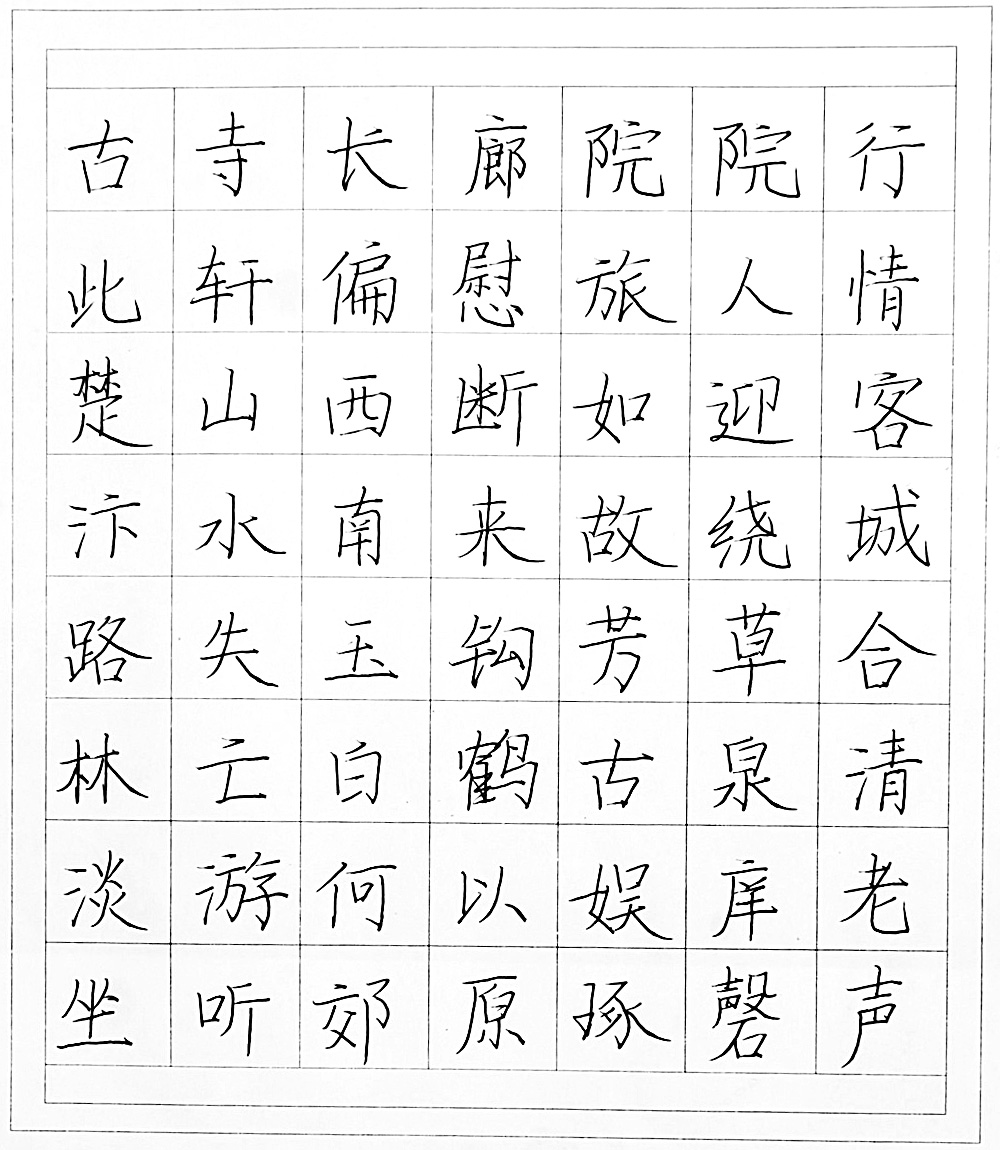 古寺长廊院院行
此轩偏慰旅人情
楚山西断如迎客
汴水南来故绕城
路失玉钩芳草合
林亡白鹤古泉清
淡游何以娱庠老
坐听郊原琢磬声